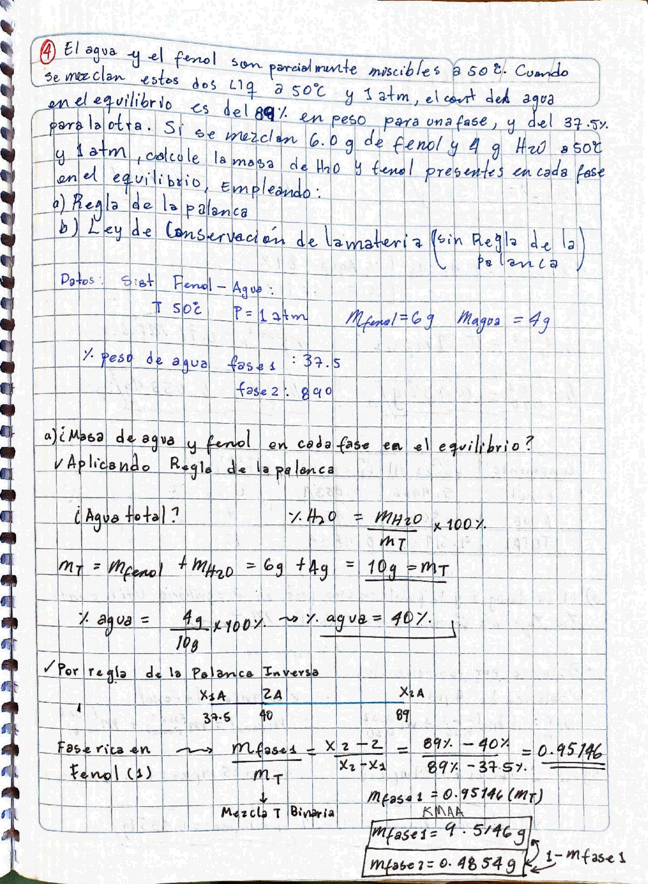 ④ El agua y el fenol son parcialmente miscibles a 50°c. Cuando
se mezclan estos dos Liq a 50°c y 1 atm, el cont del agua
en el equilibrio es del 89% en peso para una fase, y del 37.5%
para la otra. Si se mezclan 6.0 g de fenol y 4 g H2O a 50°c
y 1 atm, calcule la masa de H2O y fenol presentes en cada fase
en el equilibrio, Empleando:
a) Regla de la palanca
b) Ley de Conservación de la materia (sin Regla de la
palanca)
Datos: Sist Fenol - Agua:
T 50°c P = 1 atm Mfenol = 6g Magua = 4g
% peso de agua fase 1 : 37.5
fase 2 : 890
a) ¿Masa de agua y fenol en cada fase en el equilibrio?
✓ Aplicando Regla de la palanca
¿Agua total? % H2O = mH2O / mT x 100%
mT = mfenol + mH2O = 6g + 4g = 10g = mT
% agua = 4g / 10g x 100% ⇝ % agua = 40%.
✓ Por regla de la Palanca Inversa
X1A ZA X2A
37.5 40 89
Fase rica en Fenol (1) ⇝ mfase1 / mT = x2 - z / x2 - x1 = 89% - 40% / 89% - 37.5% = 0.95146
↓ mfase1 = 0.95146 (mT)
Mezcla T Binaria KMAA
mfase1 = 9.5146 g
mfase2 = 0.4854 g 1 - mfase1